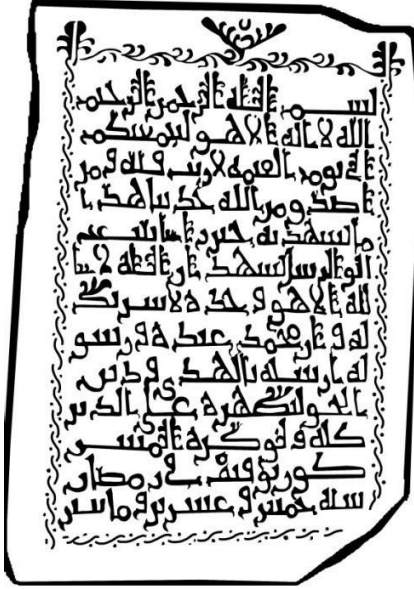 بسم الله الرحمن الرحيم
الله لا اله الا هو ليجمعنكم
الى يوم القيمة لا ريب فيه ومن
اصدق من الله حديثا هذا
ما يشهد به
يشهد ان
الا هو وحده لا شريك
له وان محمد عبده ورسو
له ارسله بالهدى ودين
الحق ليظهره على الدين
كله ولو كره المشر
كون توفيت في رمضان
سنة خمس وعشرين ومائتين